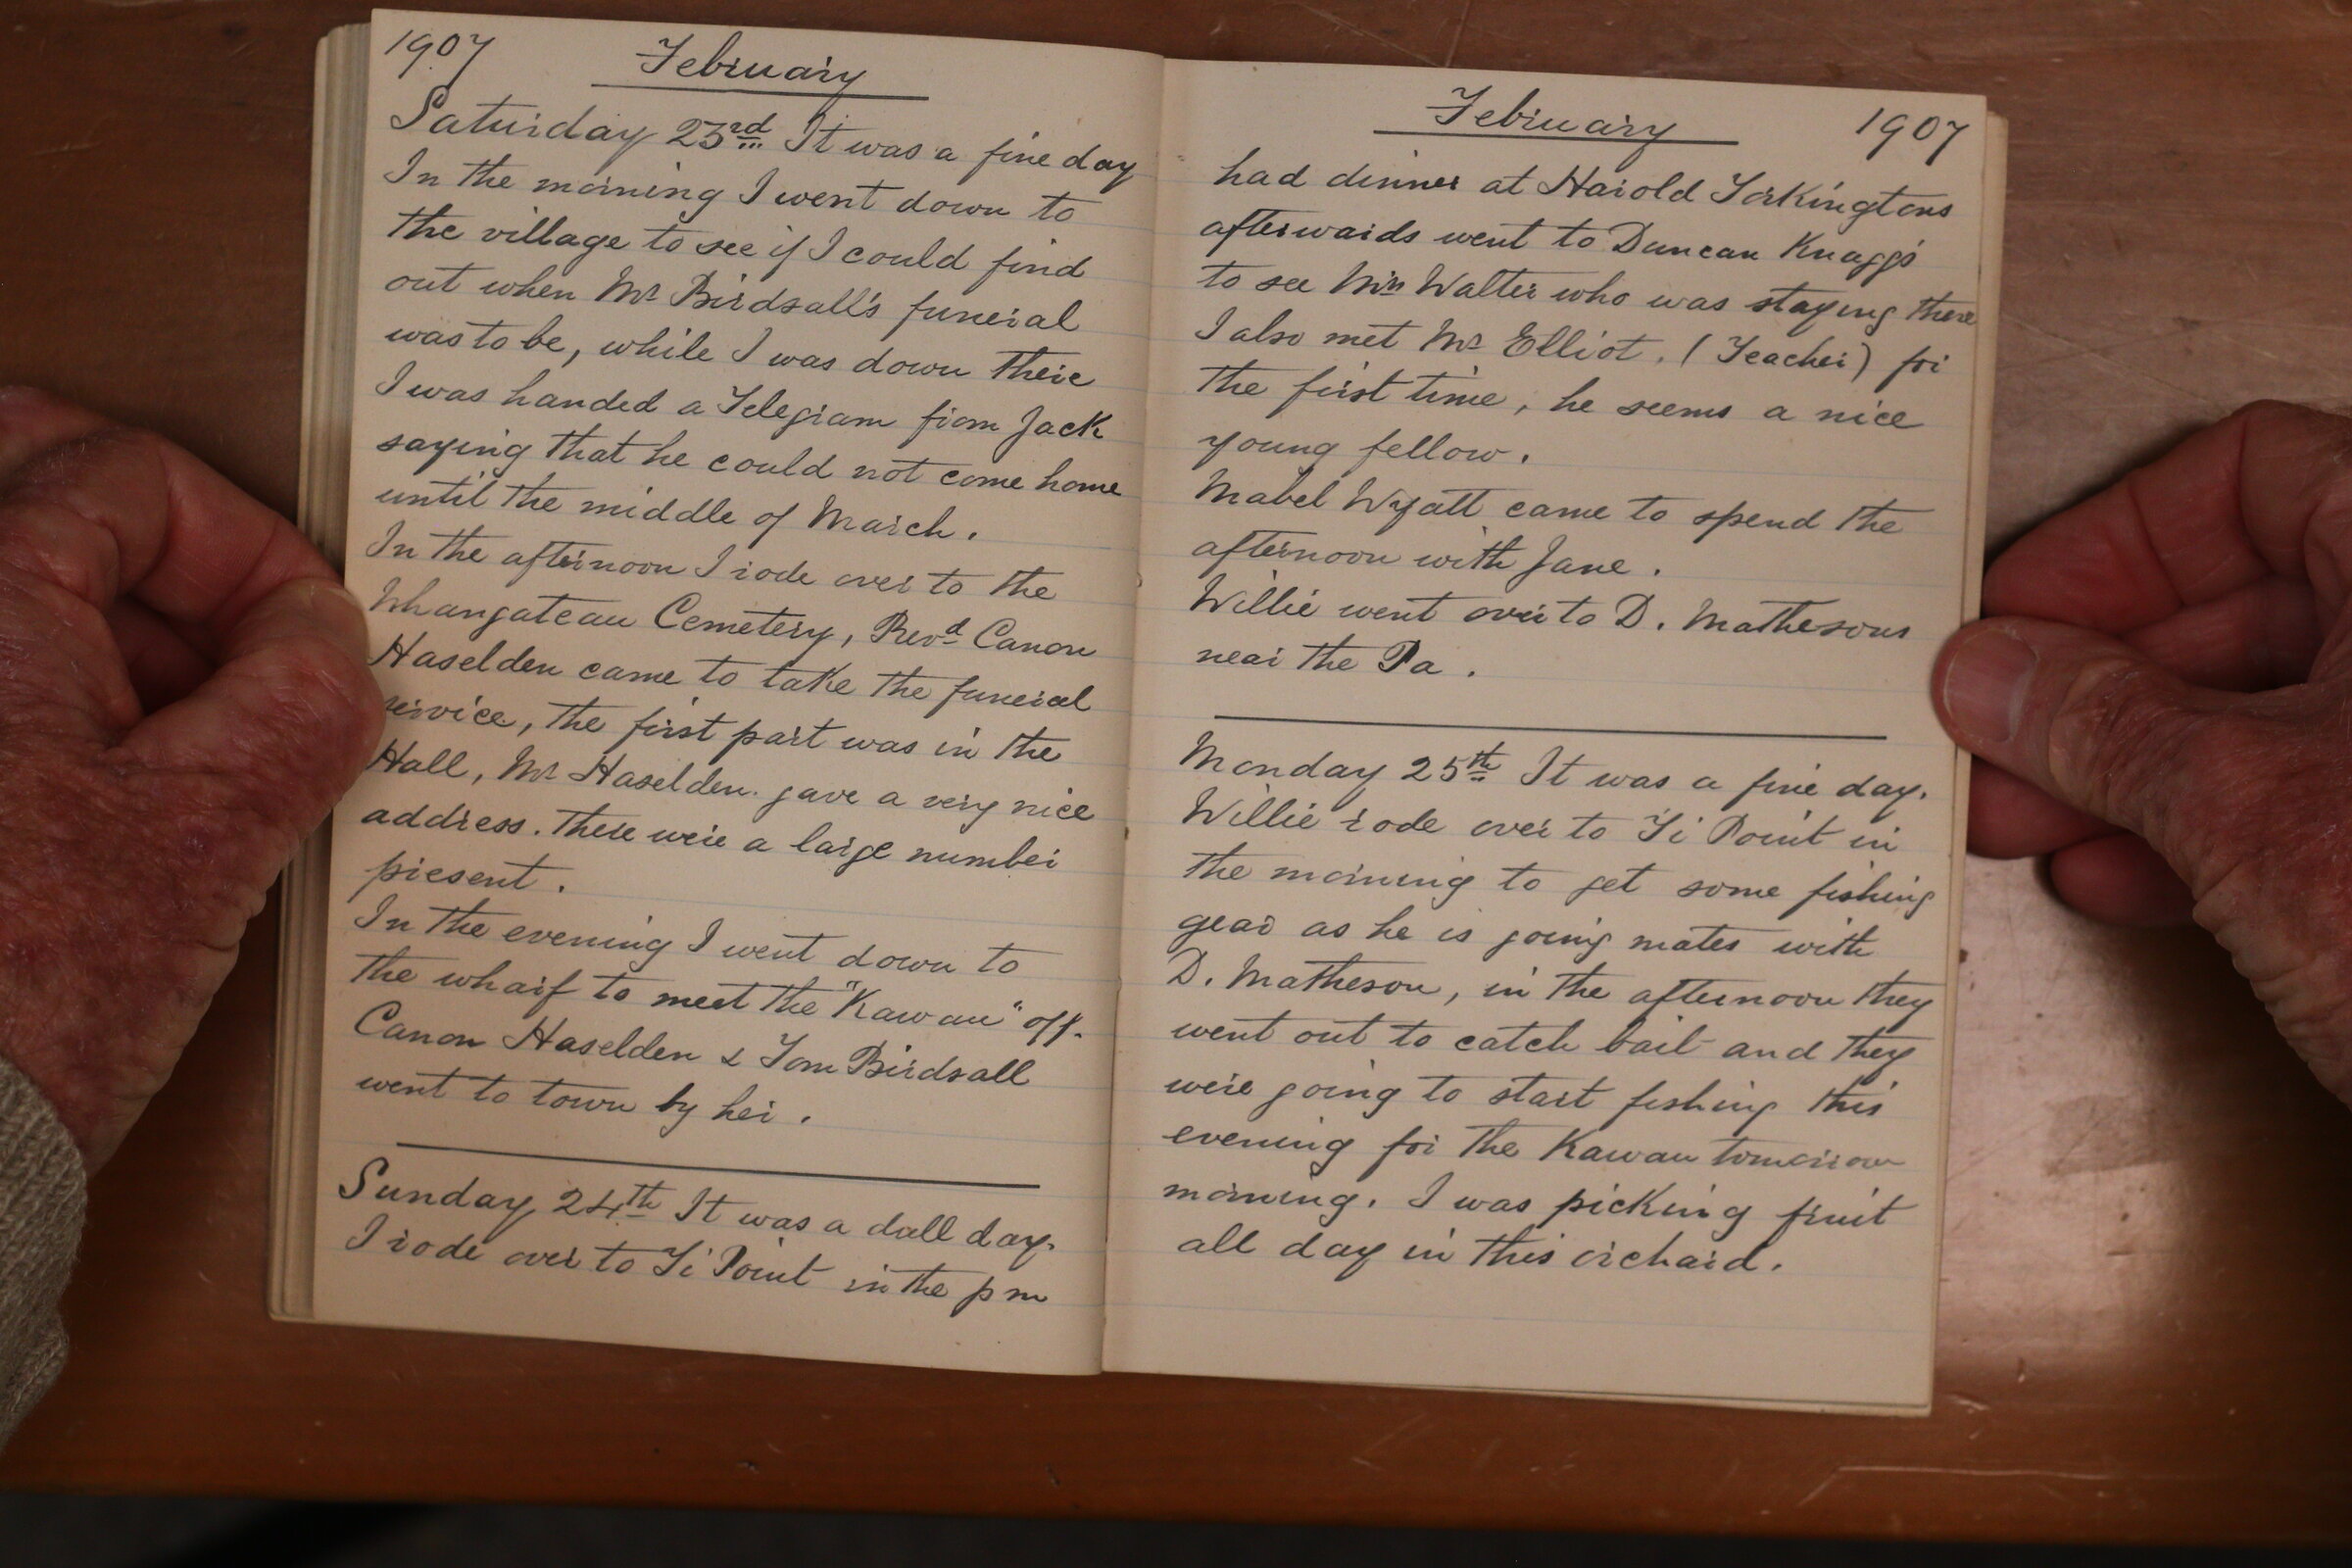 1907 February
Saturday 23rd It was a fine day
In the morning I went down to
the village to see if I could find
out when Mr Birdsall's funeral
was to be, while I was down there
I was handed a Telegram from Jack
saying that he could not come home
until the middle of March.
In the afternoon I rode over to the
Whangateau Cemetery, Revd Canon
Haselden came to take the funeral
service, the first part was in the
Hall, Mr Haselden. gave a very nice
address. There were a large number
present.
In the evening I went down to
the wharf to meet the "Kawau" off.
Canon Haselden & Tom Birdsall
went to town by her.
Sunday 24th It was a dull day.
I rode over to Ti Point in the pm
February 1907
had dinner at Harold Torkingtons
afterwards went to Duncan Knaggs
to see Walter who was staying there
I also met Mr Elliot. (Teacher) for
the first time, he seems a nice
young fellow.
Mabel Wyatt came to spend the
afternoon with Jane.
Willie went over to D. Mathesons
near the Pa.
Monday 25th It was a fine day.
Willie rode over to Ti Point in
the morning to get some fishing
gear as he is going mates with
D. Matheson, in the afternoon they
went out to catch bait and they
were going to start fishing this
evening for the Kawau tomorrow
morning. I was picking fruit
all day in this orchard.